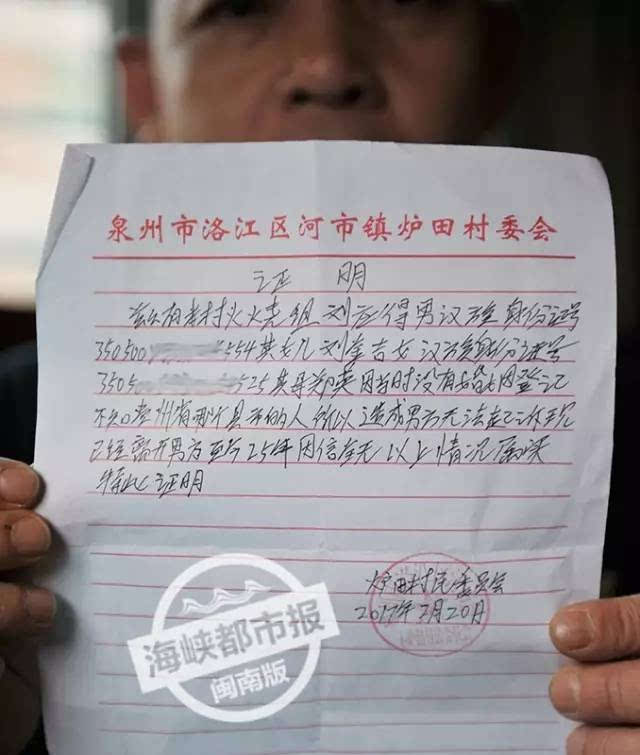 泉州市洛江区河市镇炉田村委会
证 明
兹有本村火 组 刘 得男汉族身份证号
350500 554其女儿刘 吉女汉族身份证号
3505 525其母郑英因当时没有婚姻登记
贵州省 县 的人所以造成男方无法
已经离开男方至今25年因信全无以上情况属实
特此证明
炉田村民委员会
2017年2月20日
海峡都市报
闽南版